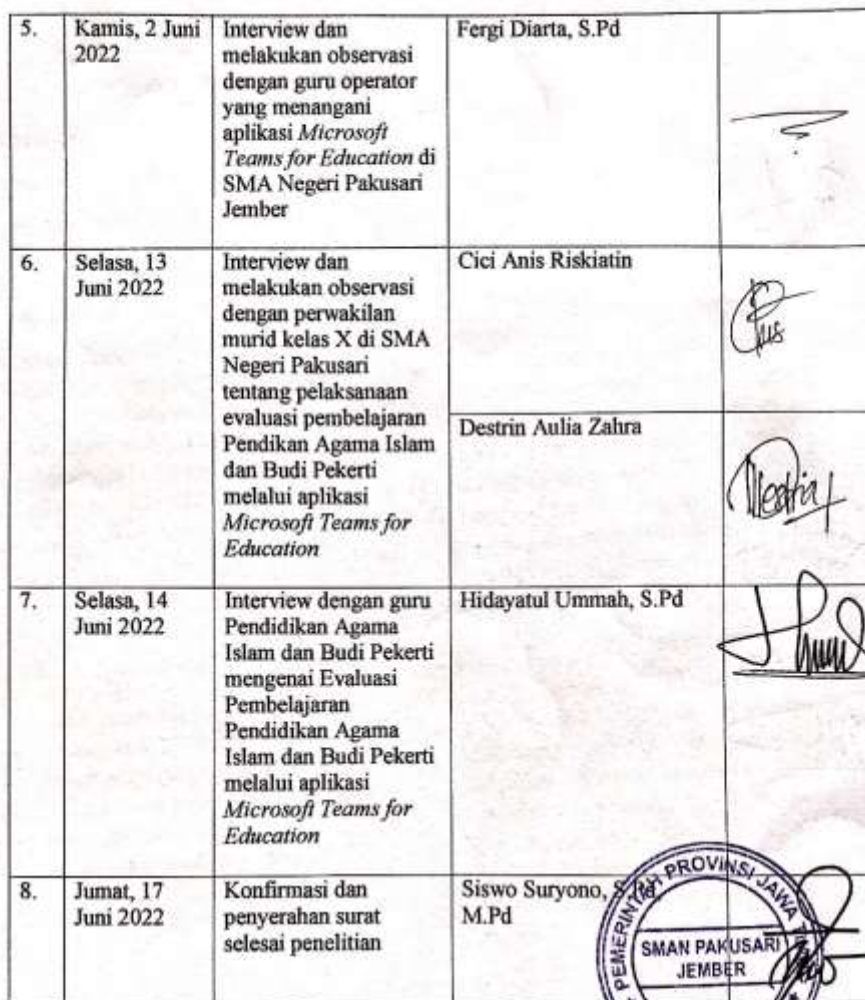 5.
Kamis, 2 Juni
2022
Interview dan
melakukan observasi
dengan guru operator
yang menangani
aplikasi Microsoft
Teams for Education di
SMA Negeri Pakusari
Jember
Fergi Diarta, S.Pd
6.
Selasa, 13
Juni 2022
Interview dan
melakukan observasi
dengan perwakilan
murid kelas X di SMA
Negeri Pakusari
tentang pelaksanaan
evaluasi pembelajaran
Pendikan Agama Islam
dan Budi Pekerti
melalui aplikasi
Microsoft Teams for
Education
Cici Anis Riskiatin
Destrin Aulia Zahra
7.
Selasa, 14
Juni 2022
Interview dengan guru
Pendidikan Agama
Islam dan Budi Pekerti
mengenai Evaluasi
Pembelajaran
Pendidikan Agama
Islam dan Budi Pekerti
melalui aplikasi
Microsoft Teams for
Education
Hidayatul Ummah, S.Pd
8.
Jumat, 17
Juni 2022
Konfirmasi dan
penyerahan surat
selesai penelitian
Siswo Suryono, S.Pd
M.Pd
PEMERINTAH PROVINSI JAWA
SMAN PAKUSARI
JEMBER